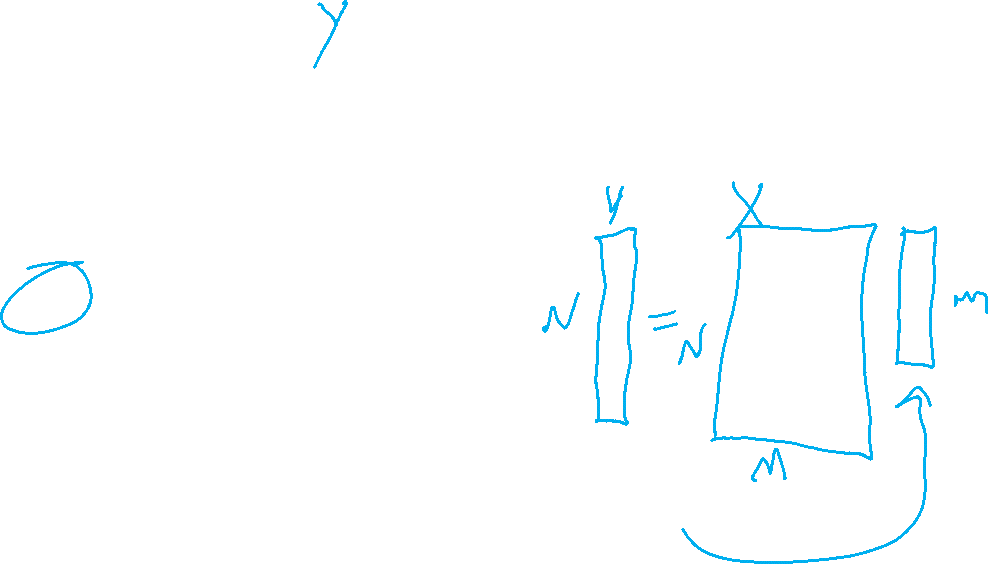 y
y X
N = N m
M